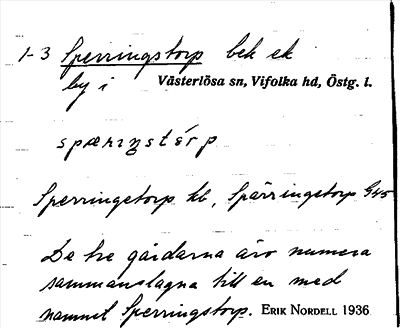 1-3 Sperringstorp bek ek
by i Västerlösa sn, Vifolka hd, Östg. l.
spærıŋstórp
Sperringetorp kb, Spärringetorp G45
De tre gårdarna äro numera
sammanslagna till en med
namnet Sperringstorp. ERIK NORDELL 1936